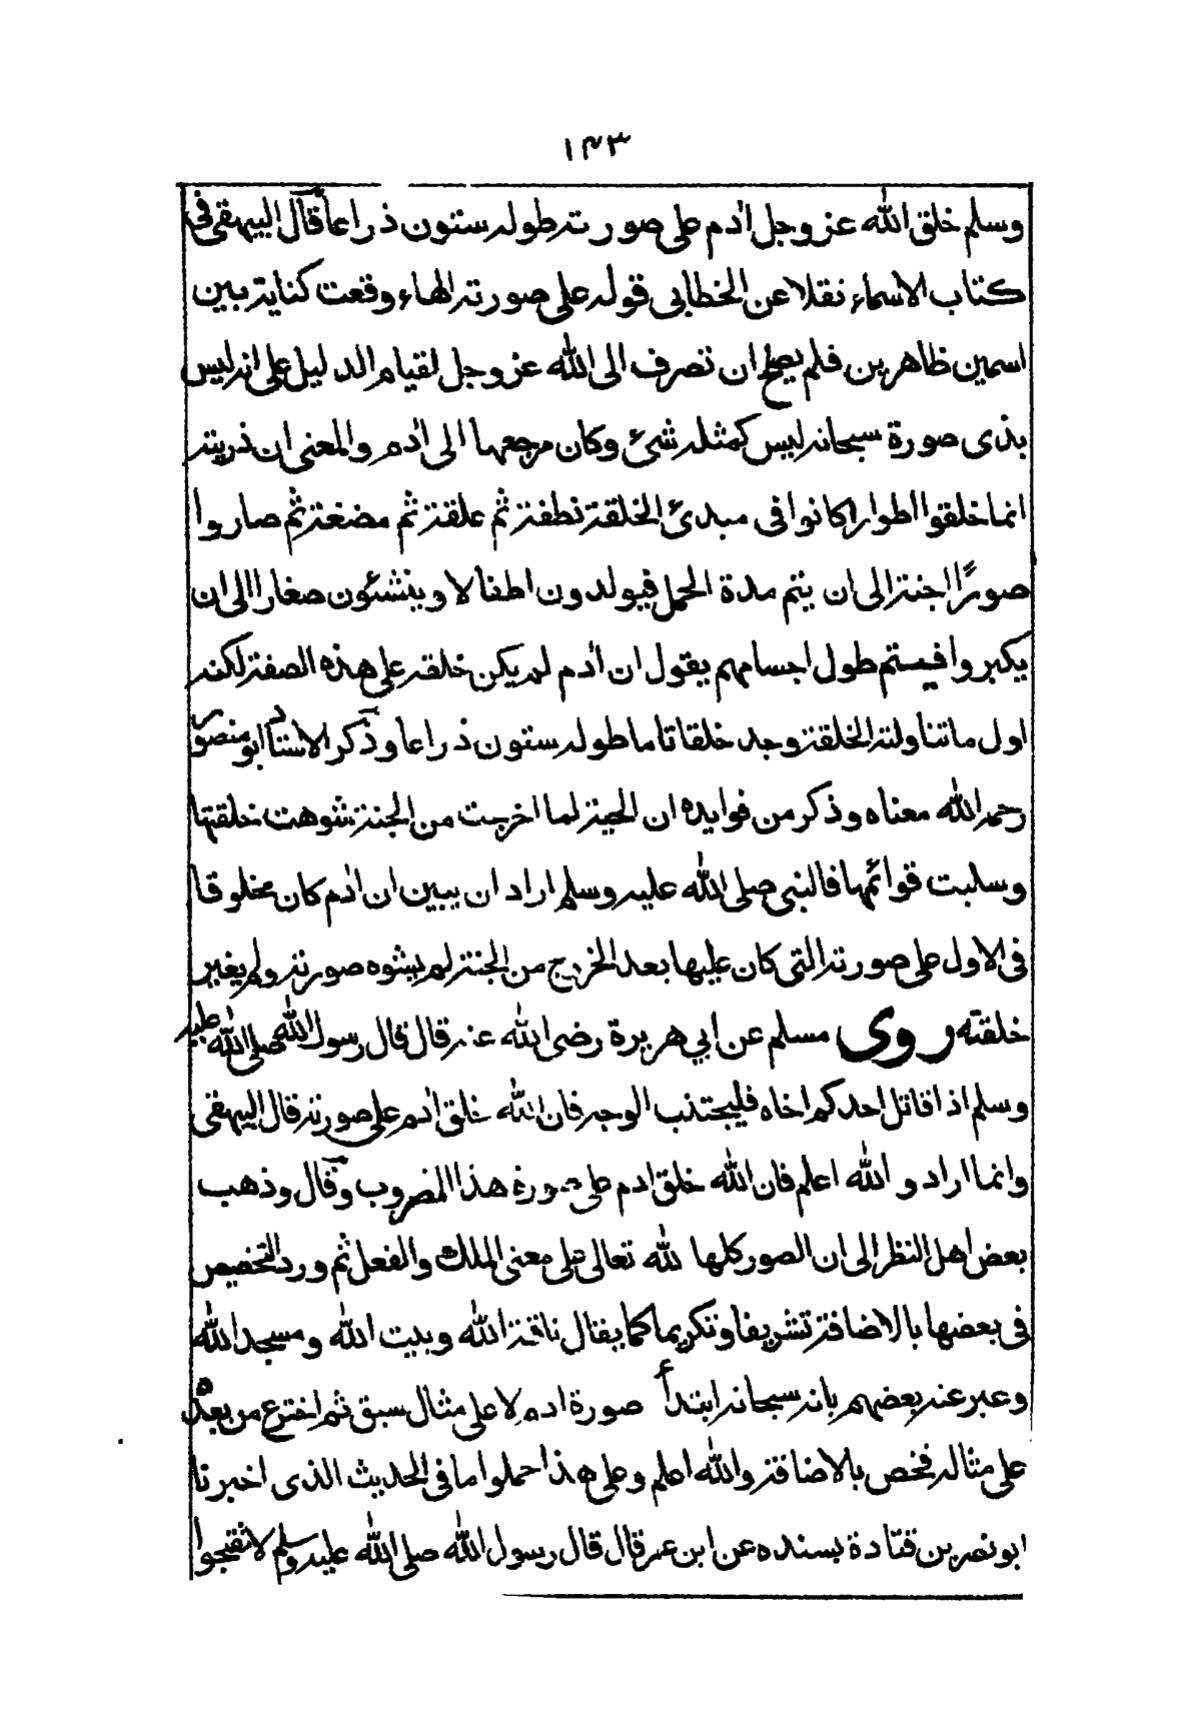 ١٤٣
وسلم خلق الله عز وجل ادم على صورته طوله ستون ذراعا قال البيهقى فى
كتاب الاسماء نقلا عن الخطابى قوله على صورته الهاء وقعت كناية بين
اسمين ظاهرين فلم يصلح ان تصرف الى الله عز وجل لقيام الدليل على انه ليس
بذى صورة سبحانه ليس كمثله شئ وكان مرجعها الى ادم والمعنى ان ذريته
انما خلقوا اطوارا كانوا فى مبدئ الخلقة نطفة ثم علقة ثم مضغة ثم صاروا
صورًا اجنة الى ان يتم مدة الحمل فيولدون اطفالا وينشئون صغارا الى ان
يكبروا فيستتم طول اجسامهم يقول ان ادم لم يكن خلقه على هذه الصفة لكنه
اول ماتناولته الخلقة وجد خلقا تاما طوله ستون ذراعا وذكر الاستاد ابو منصور
رحمه الله معناه وذكر من فوايده ان الحية لما اخرجت من الجنة شوهت خلقتها
وسلبت قوائمها فالنبى صلى الله عليه وسلم اراد ان يبين ان ادم كان مخلوقا
فى الاول على صورته التى كان عليها بعد الخروج من الجنة لم يشوه صورته ولم يغير
خلقته روى مسلم عن ابي هريرة رضى الله عنه قال قال رسول الله صلى الله عليه
وسلم اذا قاتل احدكم اخاه فليجتنب الوجه فان الله خلق ادم على صورته قال البيهقى
وانما اراد والله اعلم فان الله خلق ادم على صورة هذا المضروب وقال وذهب
بعض اهل النظر الى ان الصور كلها لله تعالى على معنى الملك والفعل ثم ورد التخصيص
فى بعضها بالاضافة تشريفا وتكريما كما يقال ناقة الله وبيت الله ومسجد الله
وعبر عنه بعضهم بانه سبحانه ابتدأ صورة ادم لا على مثال سبق ثم اخترع من بعده
على مثاله فخص بالاضافة والله اعلم وعلى هذا حملوا ما فى الحديث الذى اخبرنا
ابو نصر بن قتادة بسنده عن ابن عمر قال قال رسول الله صلى الله عليه وسلم لا تقبحوا